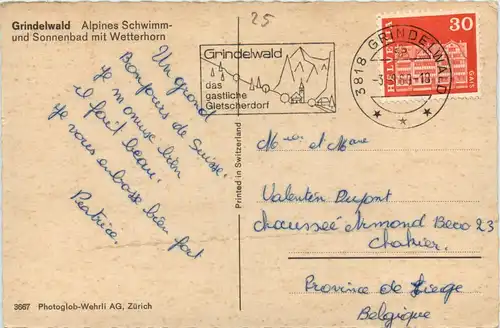 Grindelwald Alpines Schwimm-
und Sonnenbad mit Wetterhorn
25
Grindelwald
das
gastliche
Gletscherdorf
3818 GRINDELWALD
HELVETIA
30
GAIS
Un grand
Bonjours de Suisse.
Je m'amuse bien
il fait beau.
Je vous embrasse bien fort
Béatrice.
Printed in Switzerland
Mme et
Valentin Dupont
chaussée Armond 23
Province de Liège
Belgique
3667 Photoglob-Wehrli AG, Zürich